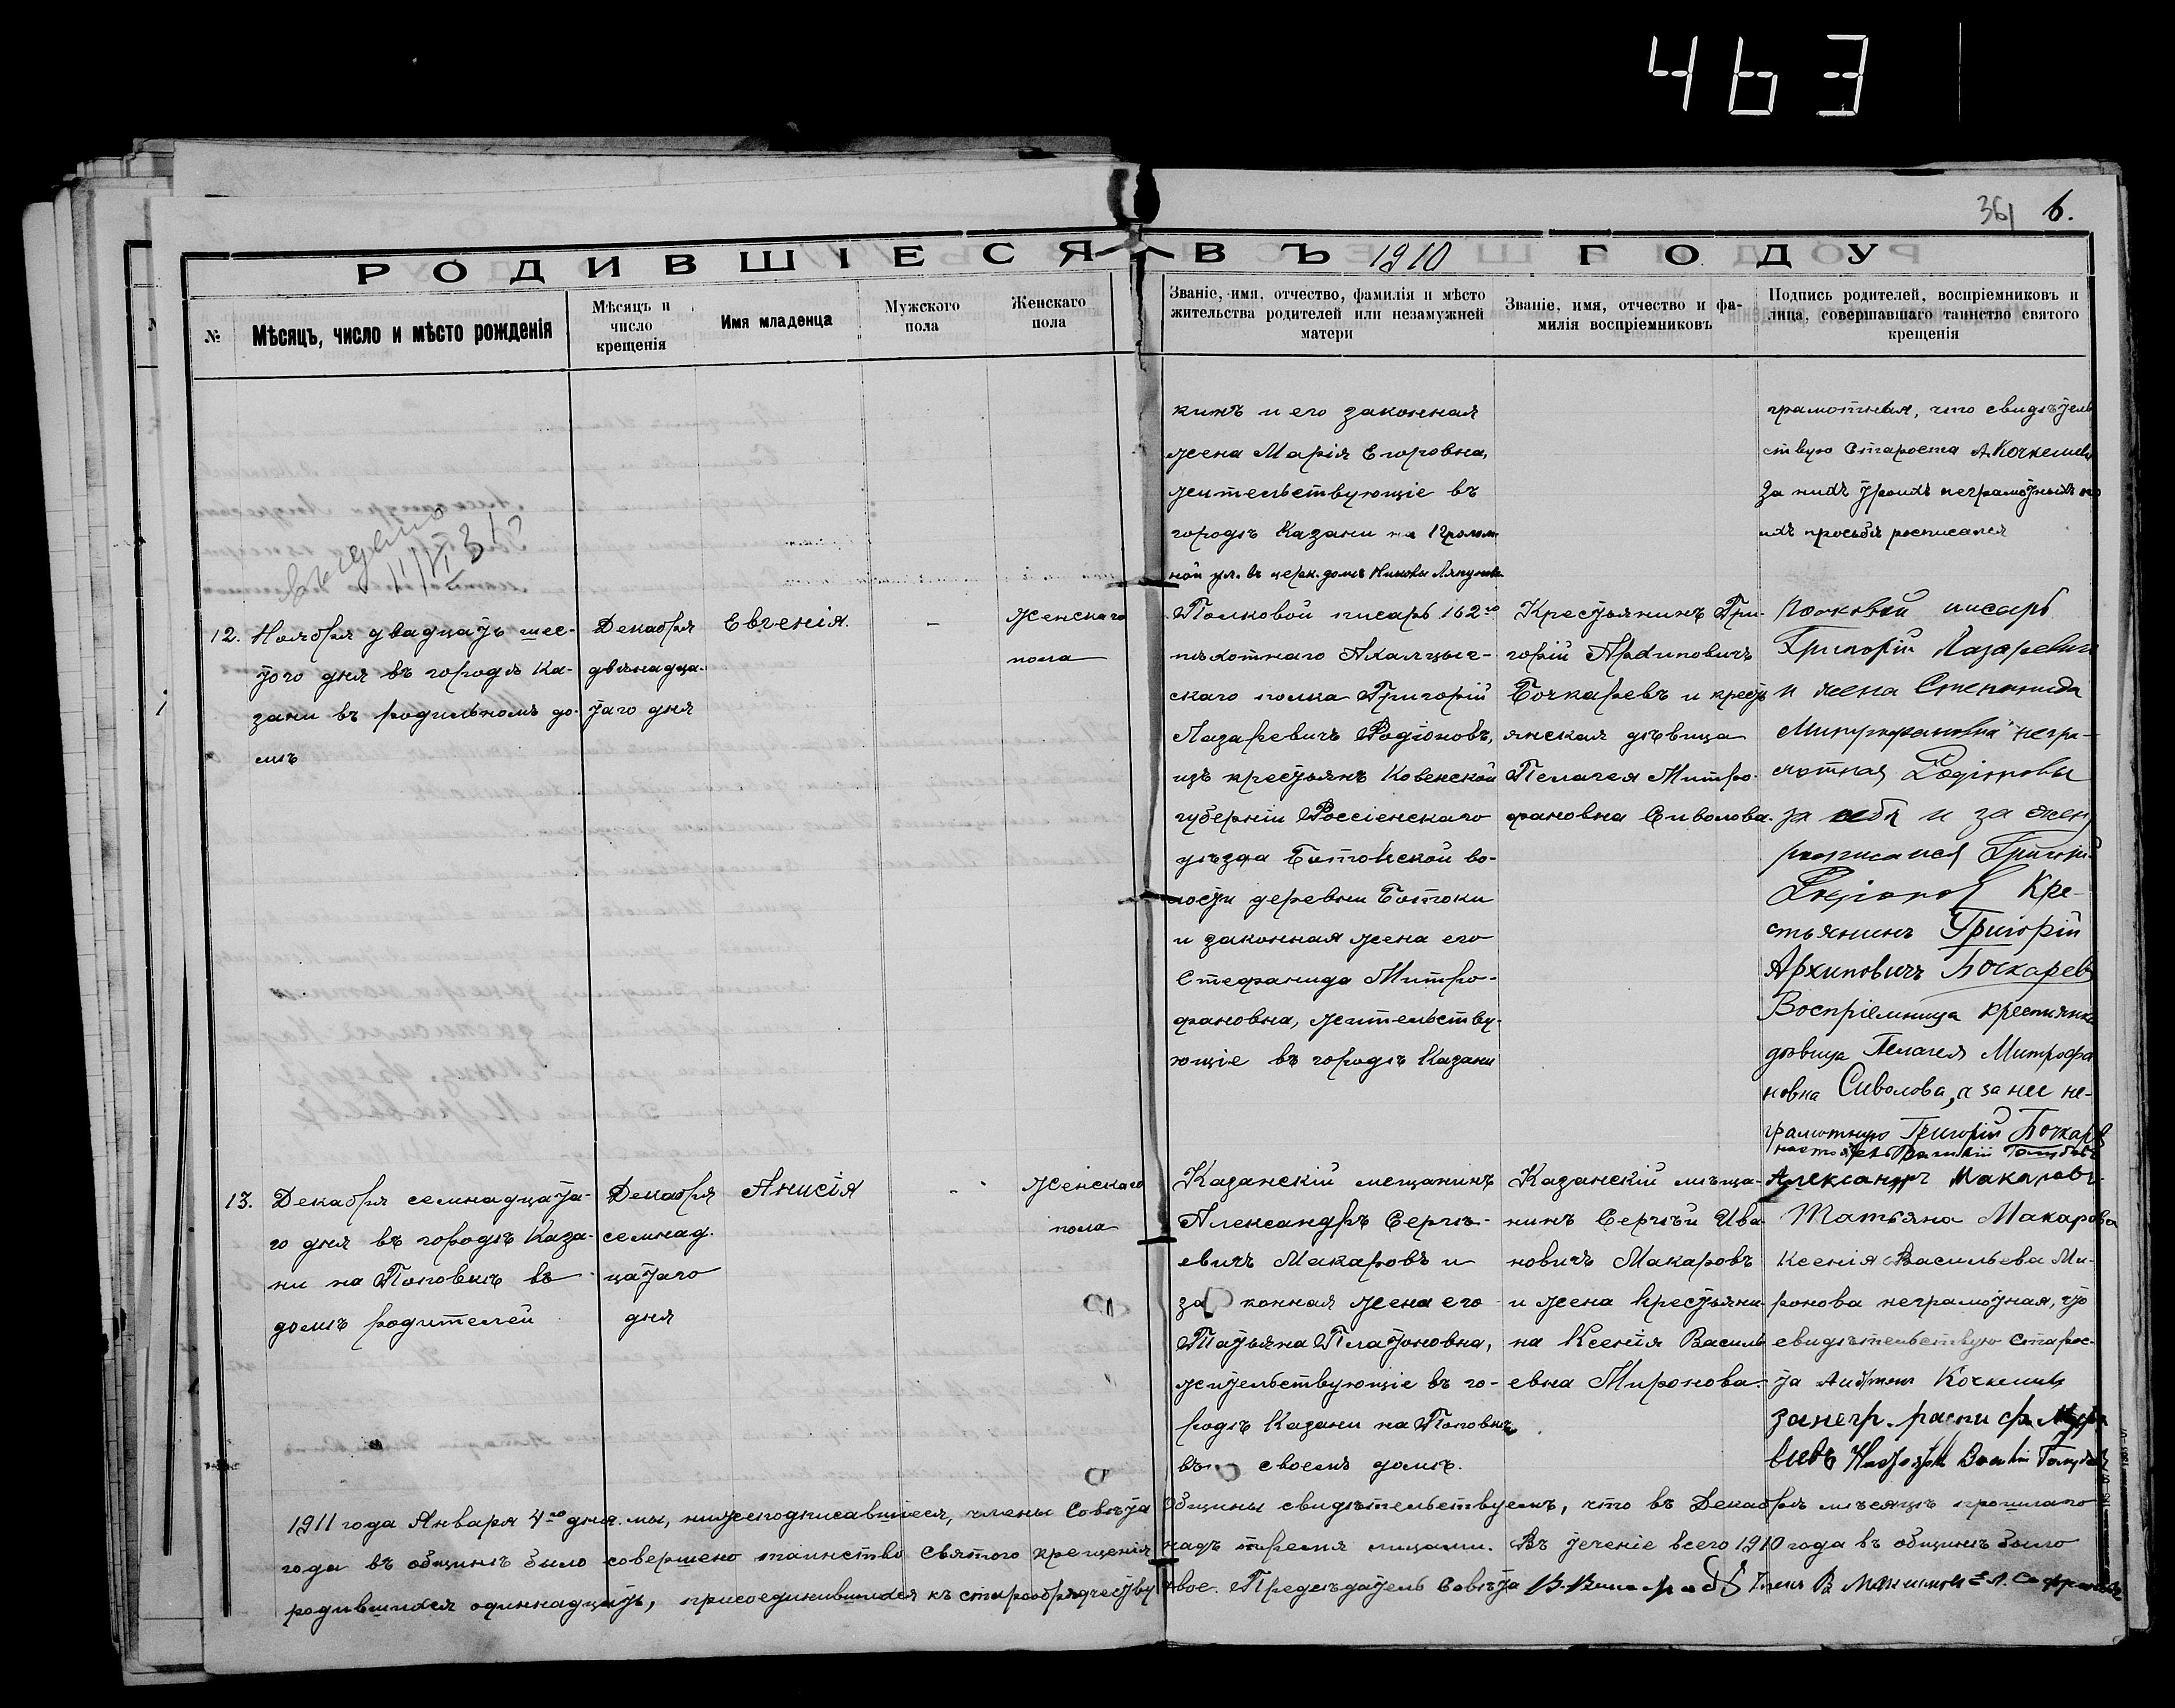 463
361 6.
РОДИВШІЕСЯ ВЪ 1910 ГОДУ
№
Мѣсяцъ, число и мѣсто рожденія
Мѣсяцъ и
число
крещенія
Имя младенца
Мужского
пола
Женскаго
пола
Званіе, имя, отчество, фамилія и мѣсто
жительства родителей или незамужней
матери
Званіе, имя, отчество и фа-
милія воспріемниковъ
Подпись родителей, воспріемниковъ и
лица, совершавшаго таинство святого
крещенія
кинъ и его законная
жена Марія Егоровна,
жительствующіе въ
городѣ Казани на
ной ул. въ церк. домѣ
грамотная, что свидѣтель
ствую Староста А. Кочкешевъ
За нихъ троихъ неграмотныхъ по
ихъ просьбѣ росписался
выдано
11/VI 31
12.
Ноября двадцать шес-
того дня въ городѣ Ка-
зани въ родильномъ до-
мѣ
Декабря
двѣнадца-
таго дня
Евгенія.
-
Женскаго
пола
Полковой писарь 162го
пѣхотнаго Ахалцыг-
скаго полка Григорій
Лазаревичъ Родіоновъ,
изъ крестьянъ Ковенской
губерніи Россіенскаго
уѣзда Ботокской во-
лости деревни Ботоки
и законная жена его
Стефанида Митро-
фановна, жительству-
ющіе въ городѣ Казани
Крестьянинъ Гри-
горій Архиповичъ
Бочкаревъ и кресть
янская дѣвица
Пелагея Митро-
фановна Сиволова.
Полковой писарь
Григорій Лазаревичъ
и жена Степанида
Митрофановна негра-
мотная Родіоновы
за себя и за жену
росписался Григорій
Родіоновъ Кре-
стьянинъ Григорій
Архиповичъ Бочкарев
Воспріемница крестьянка
дѣвица Пелагея Митрофа
новна Сиволова, а за нее не-
грамотную Григорій Бочкарв
настоятель
13.
Декабря семнадцата-
го дня въ городѣ Каза-
ни на Поповкѣ въ
домѣ родителей
Декабря
семнад-
цатаго
дня
Анисія
-
Женскаго
пола
Казанскій мещанинъ
Александръ Сергѣ-
евичъ Макаровъ и
законная жена его
Татьяна Платоновна,
жительствующіе въ го-
родѣ Казани на Поповкѣ
въ своемъ домѣ.
Казанскій мѣща-
нинъ Сергѣй Ива
новичъ Макаровъ
и жена крестьяни-
на Ксенія Василь
евна Миронова.
Александръ Макаровъ.
Татьяна Макарова
Ксенія Васильева Ми-
ронова неграмотная, что
свидѣтельствую старос-
та Кочкешевъ
за негр. распис
1911 года Января 4го дня. мы, нижеподписавшіеся, члены Совѣта Общины свидѣтельствуемъ, что въ Декабрѣ мѣсяцѣ прошлаго
года въ общинѣ было совершено таинство Святого крещенія надъ тремя лицами. Въ теченіе всего 1910 года въ общинѣ было
родившихся одиннадцать, присоединившихся къ старообрядчеству двое. Предсѣдатель Совѣта